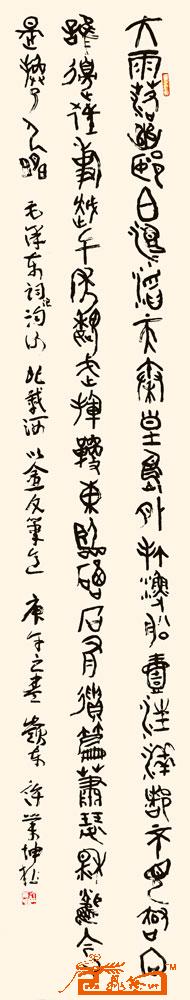 大雨落幽郾白浪滔天秦皇島外打漁船壹片汪洋都不見知向
誰邊往事越千年魏武揮鞭東臨碣石有遺篇蕭瑟秋風今又
是換了人間 毛澤東詞浪淘沙 北戴河 以金文筆意 庚午之春 嶺東 許業坤